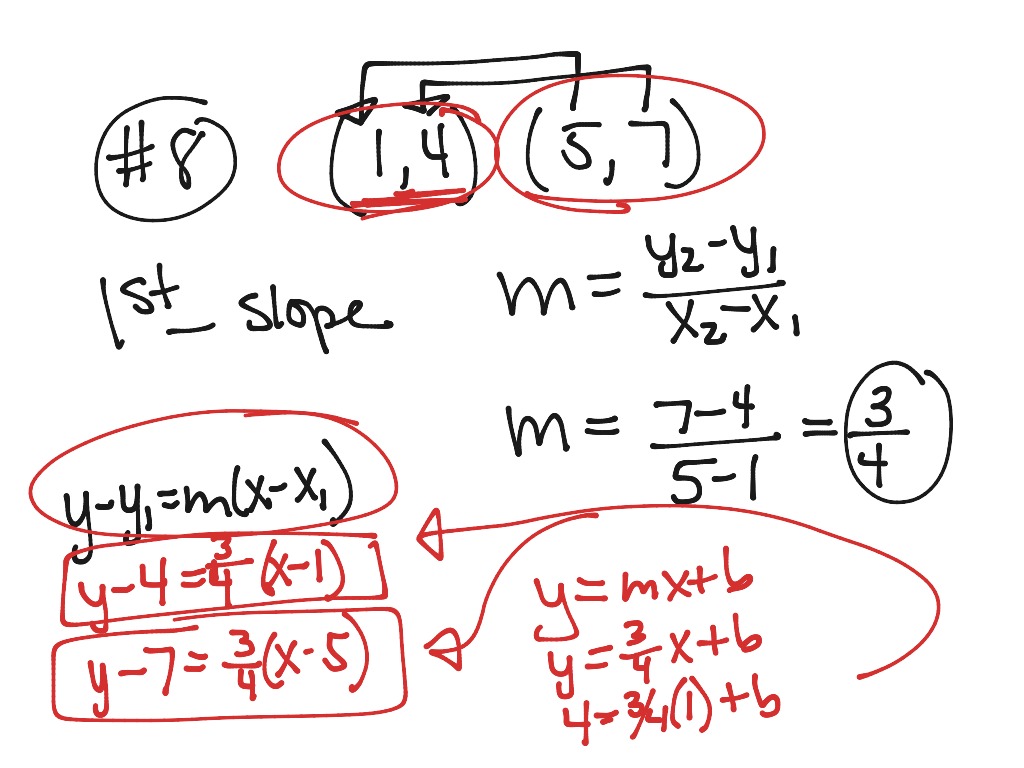 #8 (1,4) (5,7)
1st – slope m = y₂-y₁/x₂-x₁
m = 7-4/5-1 = 3/4
y-y₁=m(x-x₁)
y-4=3/4(x-1)
y-7=3/4(x-5)
y=mx+b
y=3/4x+b
4=3/4(1)+b